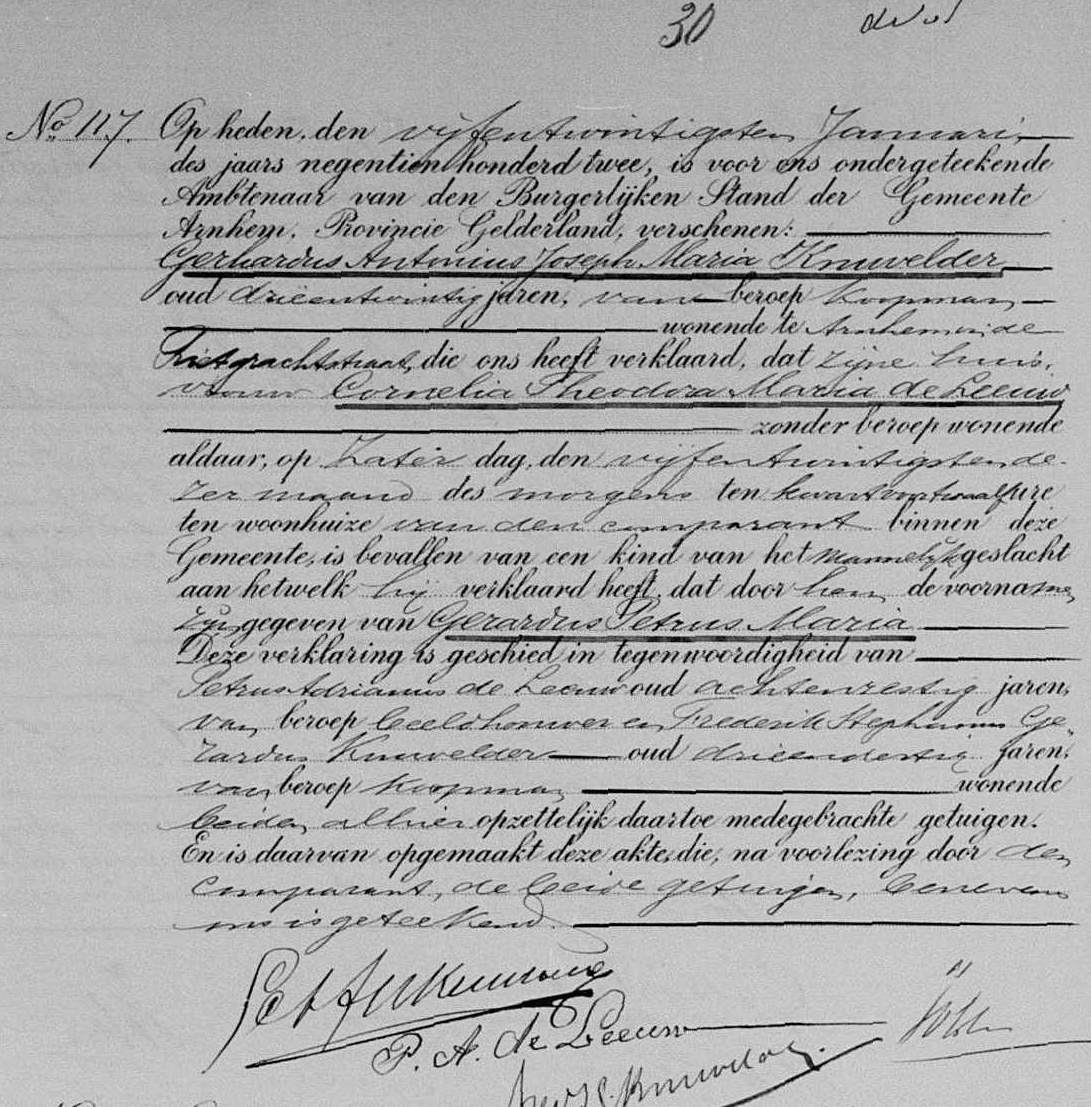 30
No 117. Op heden, den vijfentwintigsten Januari,
des jaars negentien honderd twee, is voor ons ondergeteekende
Ambtenaar van den Burgerlijken Stand der Gemeente
Arnhem, Provincie Gelderland, verschenen:
Gerhardus Antonius Joseph Maria Knuvelder,
oud drieentwintig jaren, van beroep koopman,
wonende te Arnhem in de
Rietgrachtstraat, die ons heeft verklaard, dat zijne huis,
vrouw Cornelia Theodora Maria de Leeuw
zonder beroep wonende
aldaar, op Zater dag, den vijfentwintigsten de-
zer maand des morgens ten kwart voor twaalf ure
ten woonhuize van den comparant binnen deze
Gemeente, is bevallen van een kind van het mannelijk geslacht
aan hetwelk hij verklaard heeft, dat door hem de voornamen
zijn gegeven van Gerardus Petrus Maria
Deze verklaring is geschied in tegenwoordigheid van
Petrus Adrianus de Leeuw oud achtenzestig jaren,
van beroep beeldhouwer en Frederik Stephanus Ge-
rardus Knuvelder oud drieendertig jaren,
van beroep koopman wonende
beiden alhier opzettelijk daartoe medegebrachte getuigen.
En is daarvan opgemaakt deze akte, die, na voorlezing door den
comparant, de beide getuigen, benevens
ons is geteekend.
P. A. de Leeuw
Knuvelder.